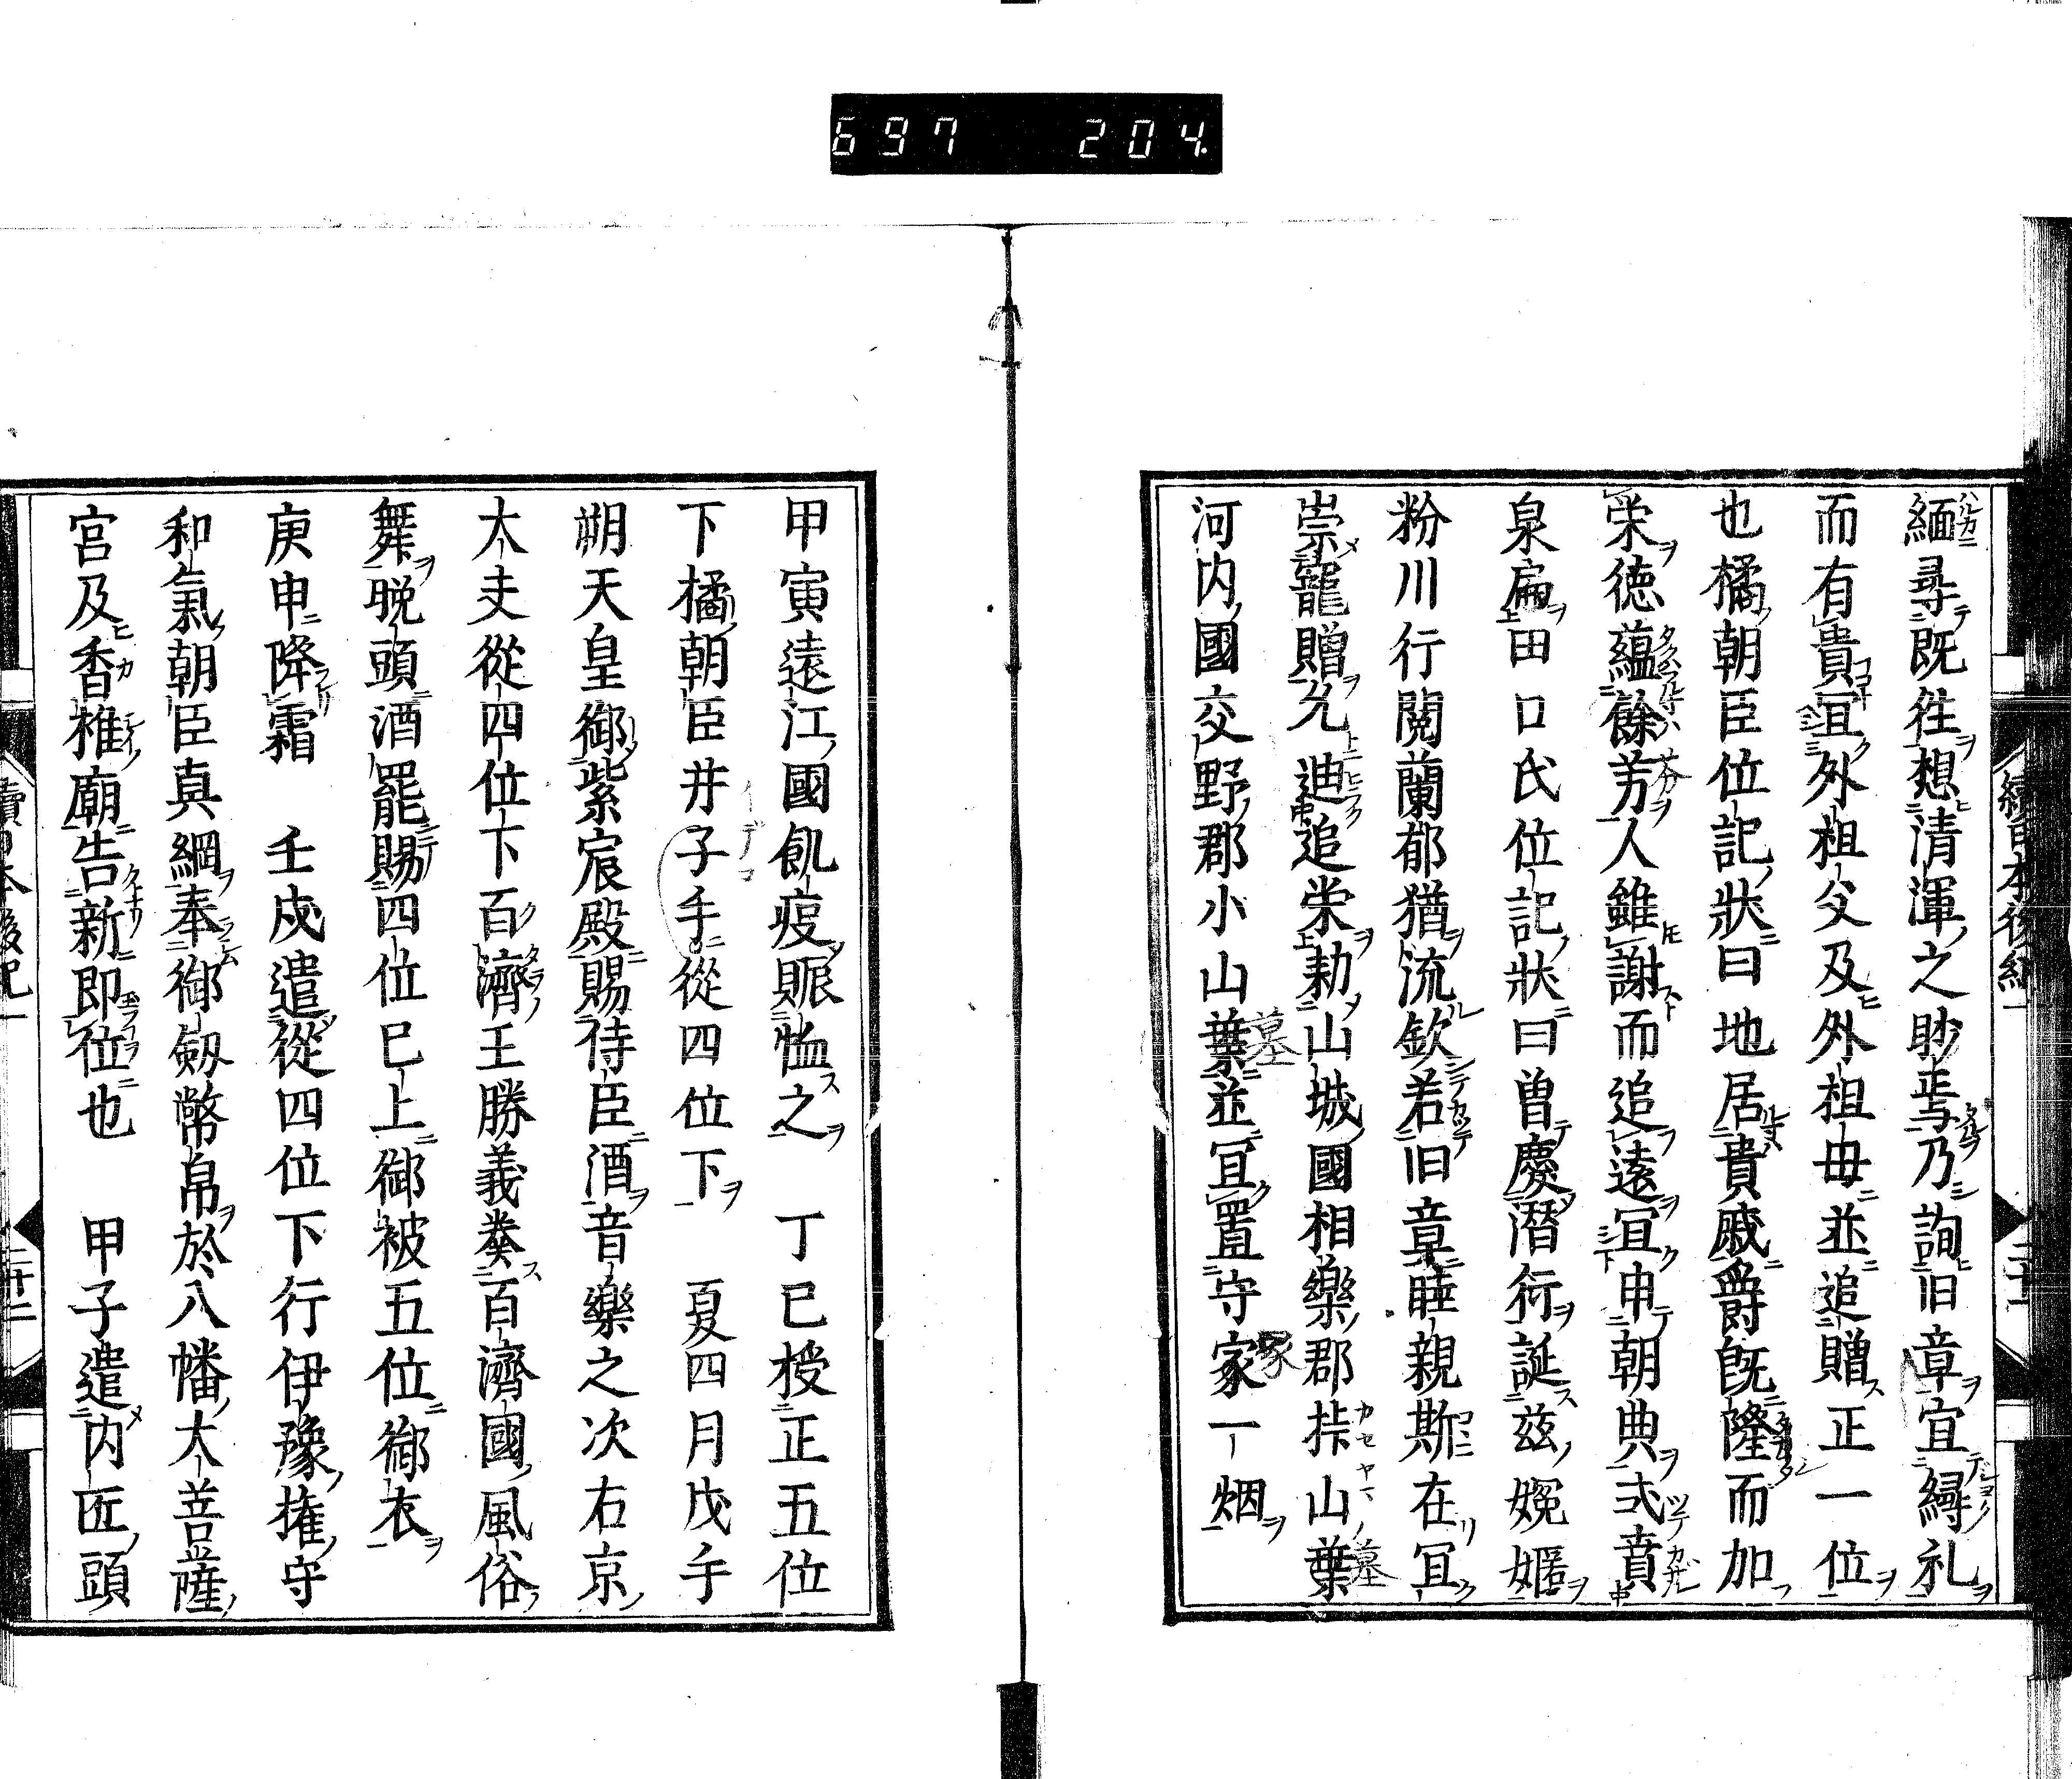 697 204
緬尋既徃想清渾之眇焉乃詢旧章宜縟礼
而有貴冝外祖父及外祖毋並追贈正一位
也橘朝臣位記状曰地居貴戚爵既隆而加
栄徳蘊餘芳人雖謝而追遠冝申朝典式賁
泉扃田口氏位記状曰曽慶潛衍誕茲婉嫕
粉川行閲蘭郁猶流欽若旧章睦親斯在冝
崇寵贈允迪追栄勅山城國相樂郡挊山葉
河内國交野郡小山葉並冝置守家一烟
甲寅遠江國飢疫賑恤之　丁巳授正五位
下橘朝臣井子手從四位下　夏四月戊手
朔天皇御紫宸殿賜侍臣酒音樂之次右京
大夫從四位下百濟王勝義奏百濟國風俗
舞晩頭酒罷賜四位巳上御被五位御衣
庚申降霜　壬戌遣從四位下行伊豫權守
和氣朝臣真綱奉御剱幣帛於八幡大菩薩
宮及香椎廟告新即位也　甲子遣内匠頭